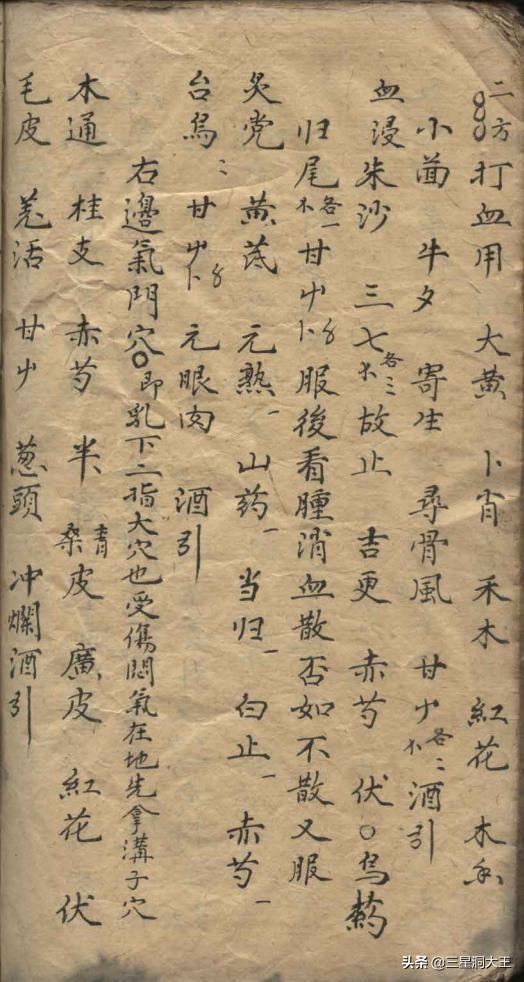 二方 打血用 大黄 卜肖 禾木 紅花 木
小茴 牛夕 寄生 尋骨風 甘屮 各二 酒引
血浸 朱沙 三七 各三 故止 吉更 赤芍 伏〇 烏藥
归尾 各一 甘屮 卜 服後看腫消血散否如不散又服
炙党 黄芪 元熟 山药 当归 白止 赤芍
台烏 甘屮 卜 元眼肉 酒引
右邊氣門穴〇即乳下二指大穴也受傷悶氣在地先拿溝子穴
木通 桂支 赤芍 半 青 桑皮 廣皮 紅花 伏
毛皮 羌活 甘屮 葱頭 冲爛酒引
头条 @三星洞大王